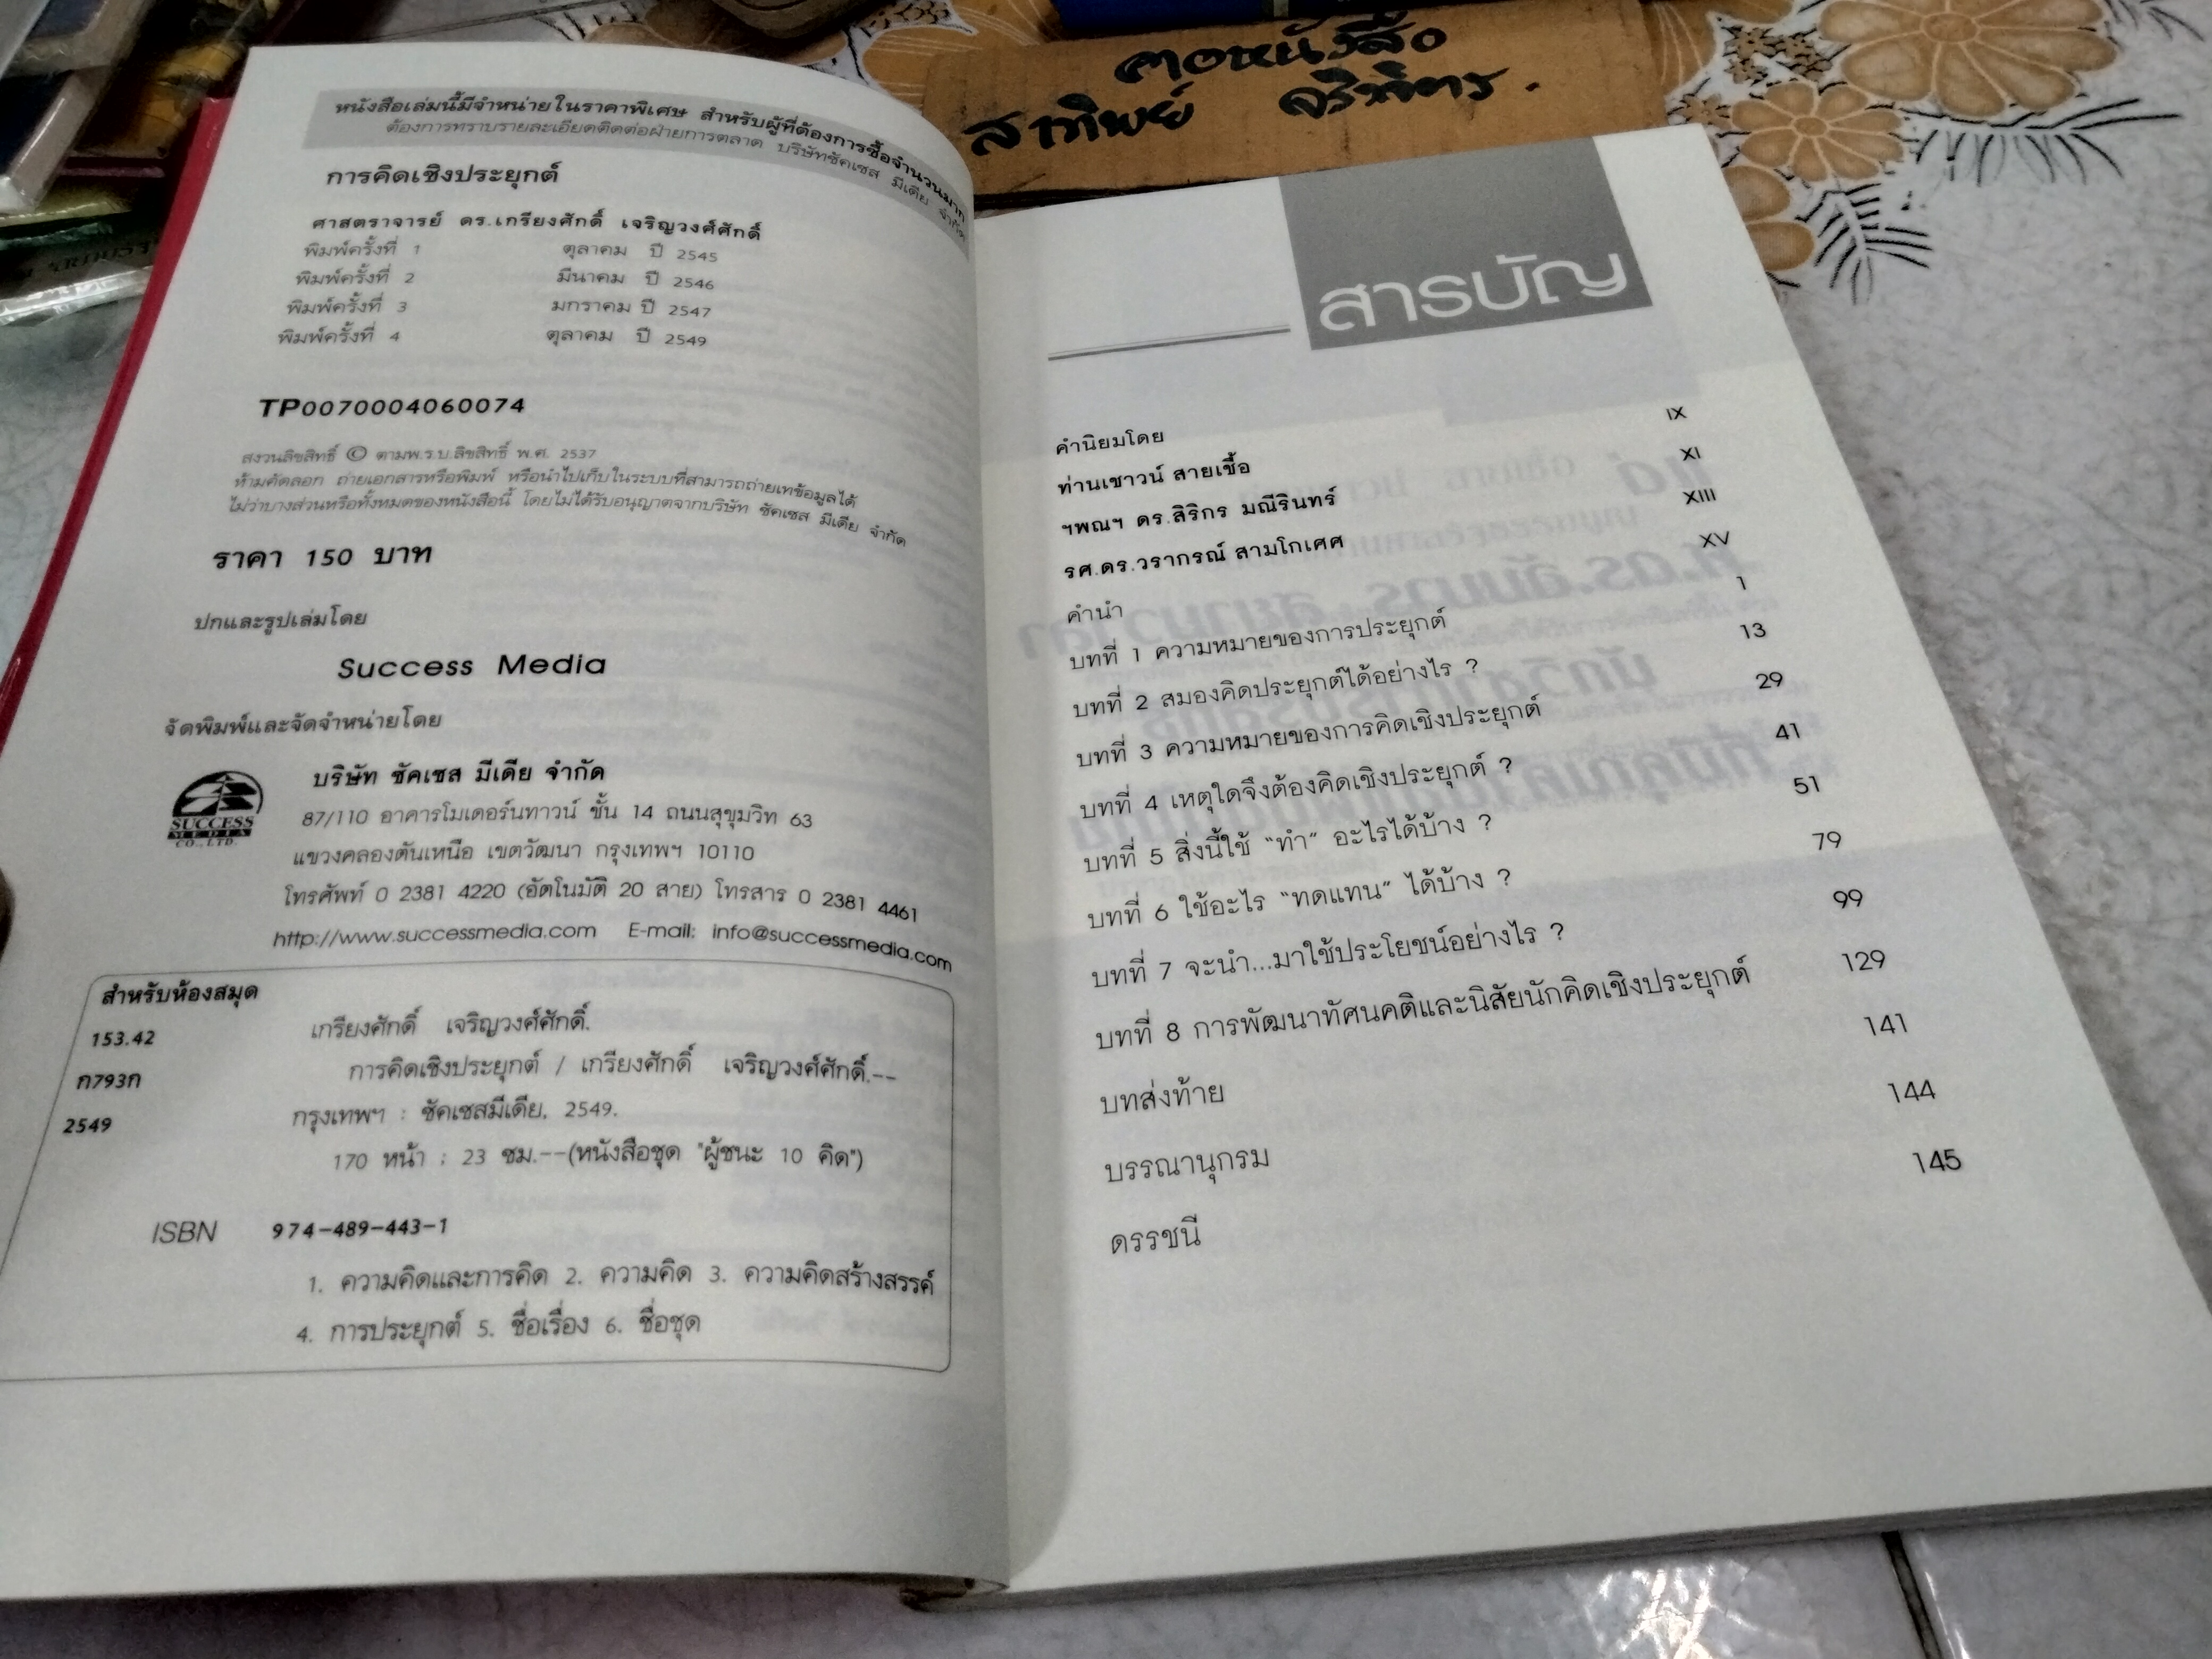 หนังสือเล่มนี้มีจำหน่ายในราคาพิเศษ สำหรับผู้ที่ต้องการซื้อจำนวนมาก
ต้องการทราบรายละเอียดติดต่อฝ่ายการตลาด บริษัทซัคเซส มีเดีย จำกัด
การคิดเชิงประยุกต์
ศาสตราจารย์ ดร.เกรียงศักดิ์ เจริญวงศ์ศักดิ์
พิมพ์ครั้งที่ 1 ตุลาคม ปี 2545
พิมพ์ครั้งที่ 2 มีนาคม ปี 2546
พิมพ์ครั้งที่ 3 มกราคม ปี 2547
พิมพ์ครั้งที่ 4 ตุลาคม ปี 2549
TP0070004060074
สงวนลิขสิทธิ์ © ตามพ.ร.บ.ลิขสิทธิ์ พ.ศ. 2537
ห้ามคัดลอก ถ่ายเอกสารหรือพิมพ์ หรือนำไปเก็บในระบบที่สามารถถ่ายเทข้อมูลได้
ไม่ว่าบางส่วนหรือทั้งหมดของหนังสือนี้ โดยไม่ได้รับอนุญาตจากบริษัท ซัคเซส มีเดีย จำกัด
ราคา 150 บาท
ปกและรูปเล่มโดย
Success Media
จัดพิมพ์และจัดจำหน่ายโดย
SUCCESS
MEDIA
CO., LTD.
บริษัท ซัคเซส มีเดีย จำกัด
87/110 อาคารโมเดอร์นทาวน์ ชั้น 14 ถนนสุขุมวิท 63
แขวงคลองตันเหนือ เขตวัฒนา กรุงเทพฯ 10110
โทรศัพท์ 0 2381 4220 (อัตโนมัติ 20 สาย) โทรสาร 0 2381 4461
http://www.successmedia.com E-mail: info@successmedia.com
สำหรับห้องสมุด
153.42 เกรียงศักดิ์ เจริญวงศ์ศักดิ์.
ก793ก การคิดเชิงประยุกต์ / เกรียงศักดิ์ เจริญวงศ์ศักดิ์.--
2549 กรุงเทพฯ : ซัคเซสมีเดีย, 2549.
170 หน้า : 23 ซม.--(หนังสือชุด "ผู้ชนะ 10 คิด")
ISBN 974-489-443-1
1. ความคิดและการคิด 2. ความคิด 3. ความคิดสร้างสรรค์
4. การประยุกต์ 5. ชื่อเรื่อง 6. ชื่อชุด
คอหนังสือ
สาทิพย์
สารบัญ
คำนิยมโดย
ท่านเชาวน์ สายเชื้อ IX
ฯพณฯ ดร.สิริกร มณีรินทร์ XI
รศ.ดร.วรากรณ์ สามโกเศศ XIII
คำนำ XV
บทที่ 1 ความหมายของการประยุกต์ 1
บทที่ 2 สมองคิดประยุกต์ได้อย่างไร ? 13
บทที่ 3 ความหมายของการคิดเชิงประยุกต์ 29
บทที่ 4 เหตุใดจึงต้องคิดเชิงประยุกต์ ? 41
บทที่ 5 สิ่งนี้ใช้ “ทำ” อะไรได้บ้าง ? 51
บทที่ 6 ใช้อะไร “ทดแทน” ได้บ้าง ? 79
บทที่ 7 จะนำ...มาใช้ประโยชน์อย่างไร ? 99
บทที่ 8 การพัฒนาทัศนคติและนิสัยนักคิดเชิงประยุกต์ 129
บทส่งท้าย 141
บรรณานุกรม 144
ดรรชนี 145